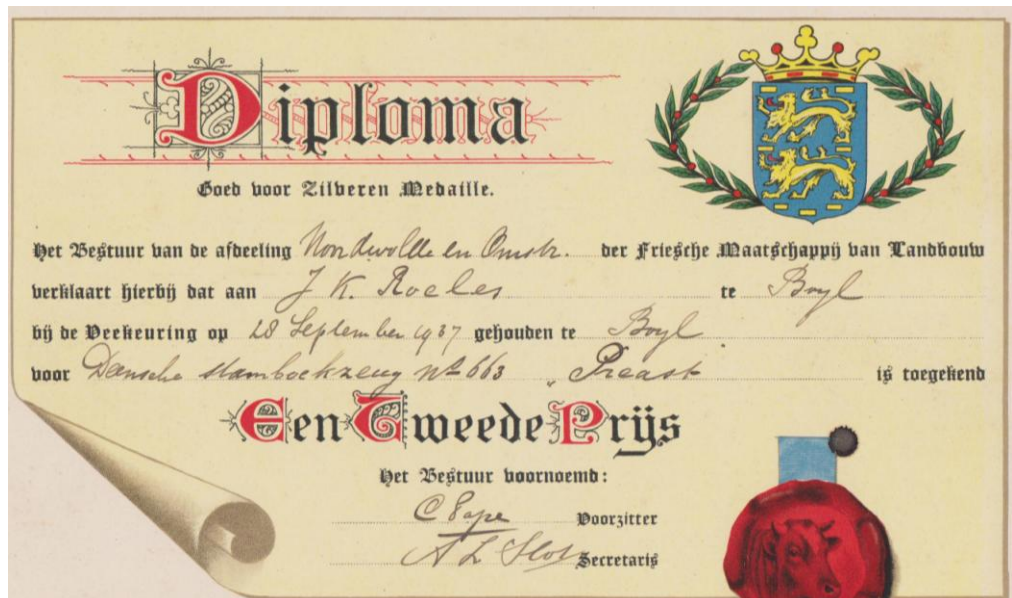 Diploma
Goed voor Zilveren Medaille.
Het Bestuur van de afdeeling Noordwolde en Omstr. der Friesche Maatschappij van Landbouw
verklaart hierbij dat aan J K. Roeles te Boyl
bij de Veekeuring op 28 September 1937 gehouden te Boyl
voor Deensche stamboekzeug No 663 „Preast is toegekend
Een Tweede Prijs
Het Bestuur voornoemd:
Voorzitter
A L Slot Secretaris